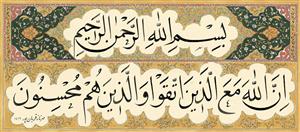 بِسْمِ اللهِ الرَّحْمٰنِ الرَّحِيمِ
اِنَّ اللهَ مَعَ الَّذِينَ اتَّقَوْا وَالَّذِينَ هُمْ مُحْسِنُونَ